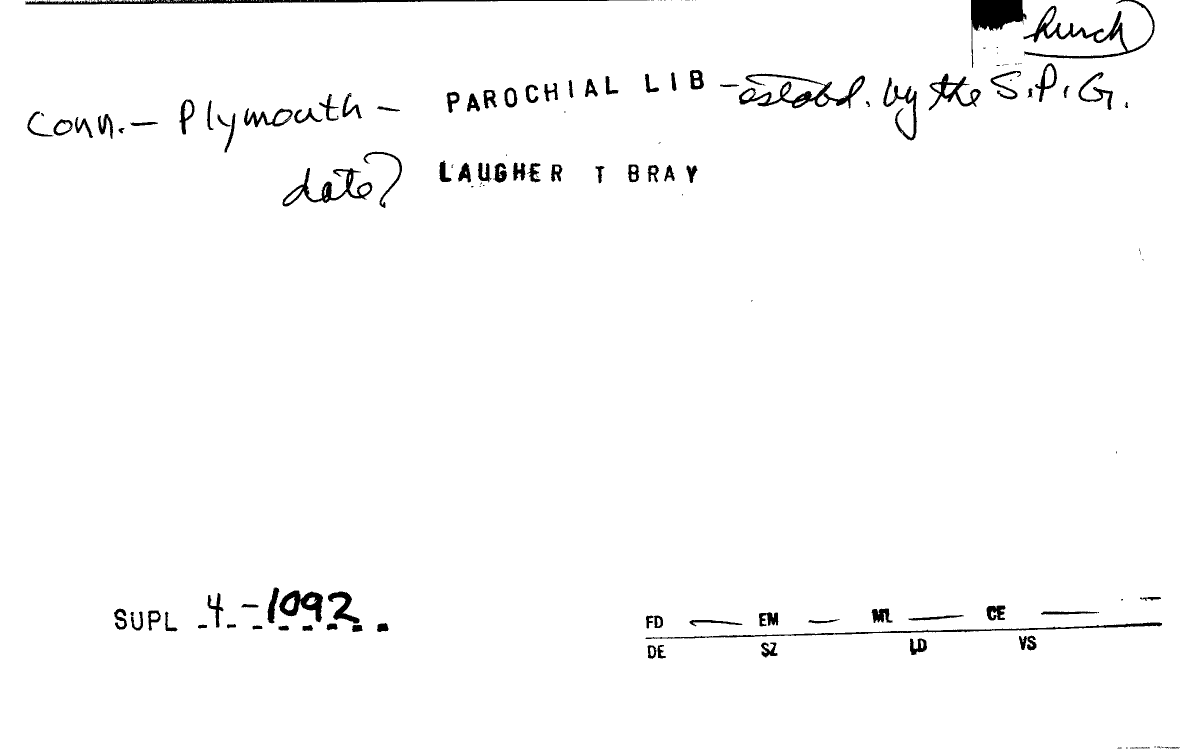 Church
Conn. — Plymouth — PAROCHIAL LIB — establd. by the S.P.G.
date? LAUGHER T BRAY
SUPL 4-1092
FD — EM — ML — CE —
DE SZ LD VS